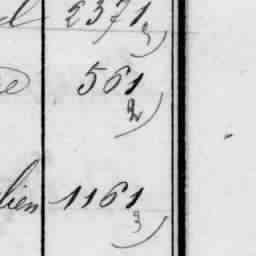 2371
3)
561
2)
lien 1161
3)